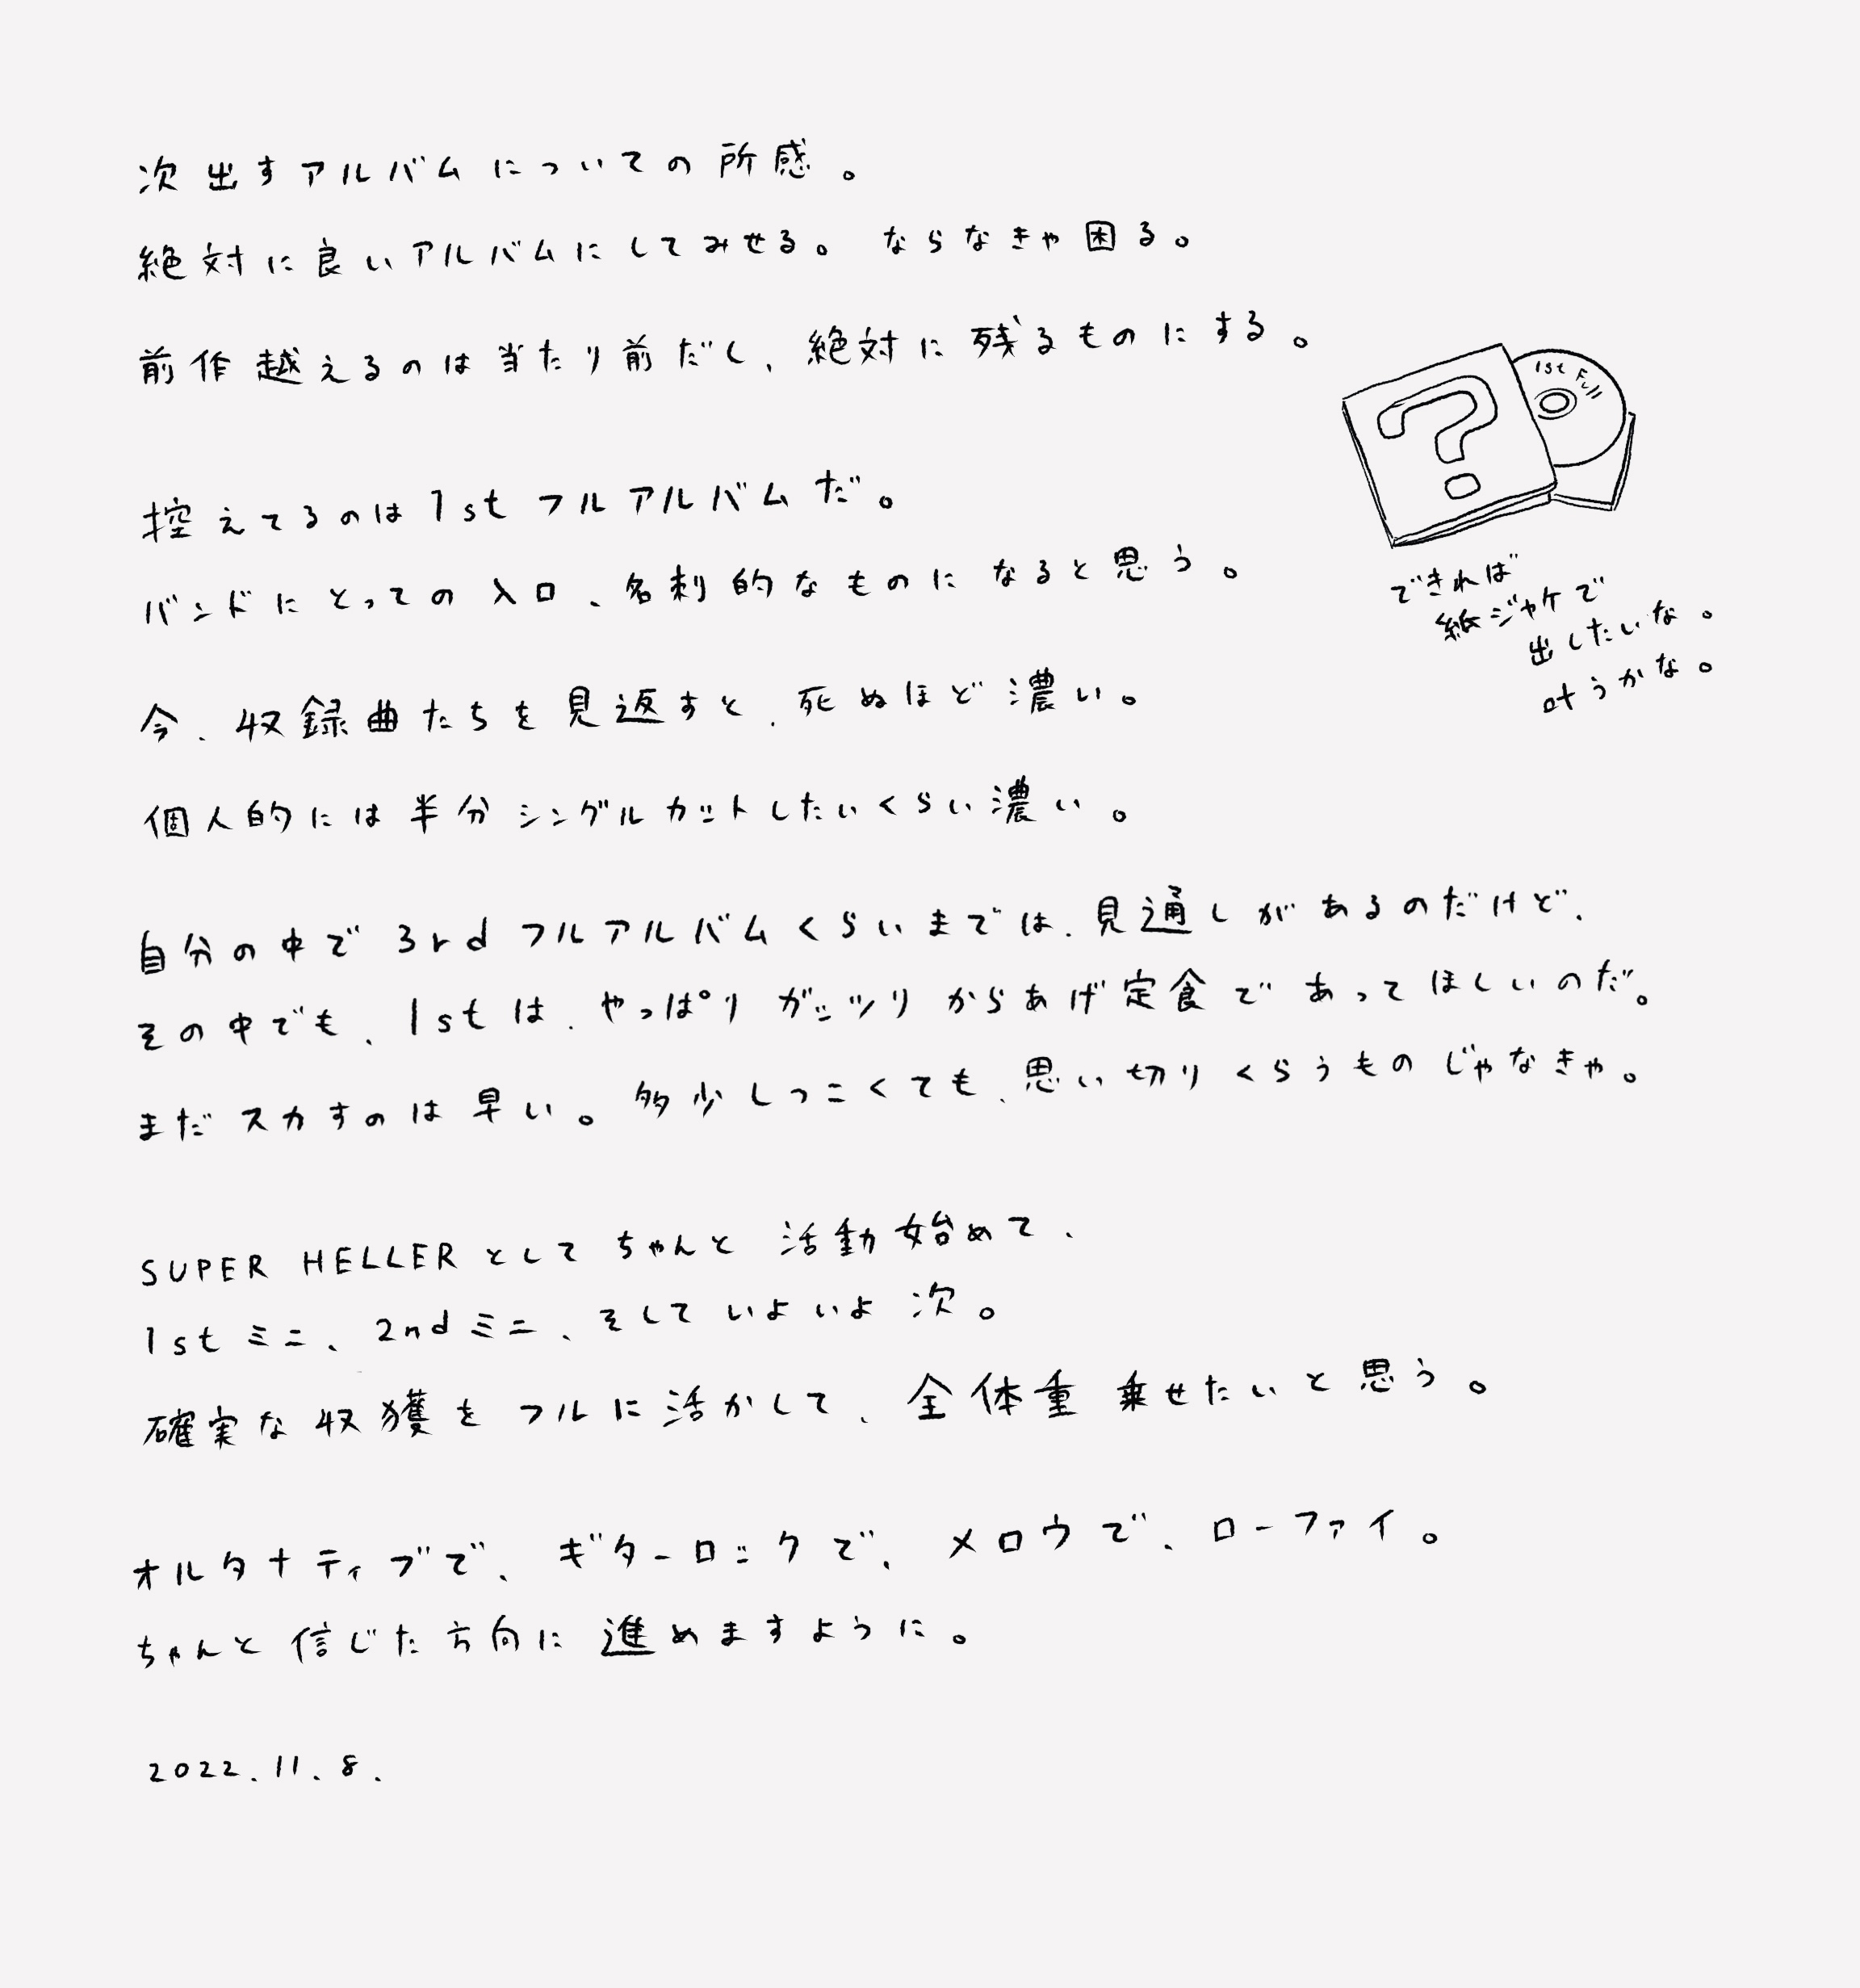 次出すアルバムについての所感。
絶対に良いアルバムにしてみせる。 ならなきゃ困る。
前作越えるのは当たり前だし、絶対に残るものにする。
1st Full
控えてるのは1stフルアルバムだ。
バンドにとっての入口、名刺的なものになると思う。
できれば
紙ジャケで
出したいな。
叶うかな。
今、収録曲たちを見返すと、死ぬほど濃い。
個人的には半分シングルカットしたいくらい濃い。
自分の中で3rdフルアルバムくらいまでは、見通しがあるのだけど、
その中でも、1stは、やっぱりガッツリからあげ定食であってほしいのだ。
まだスカすのは早い。多少しつこくても、思い切りくらうものじゃなきゃ。
SUPER HELLERとしてちゃんと活動始めて、
1stミニ、2ndミニ、そしていよいよ次。
確実な収獲をフルに活かして、全体重乗せたいと思う。
オルタナティブで、ギターロックで、メロウで、ローファイ。
ちゃんと信じた方向に進めますように。
2022.11.8.